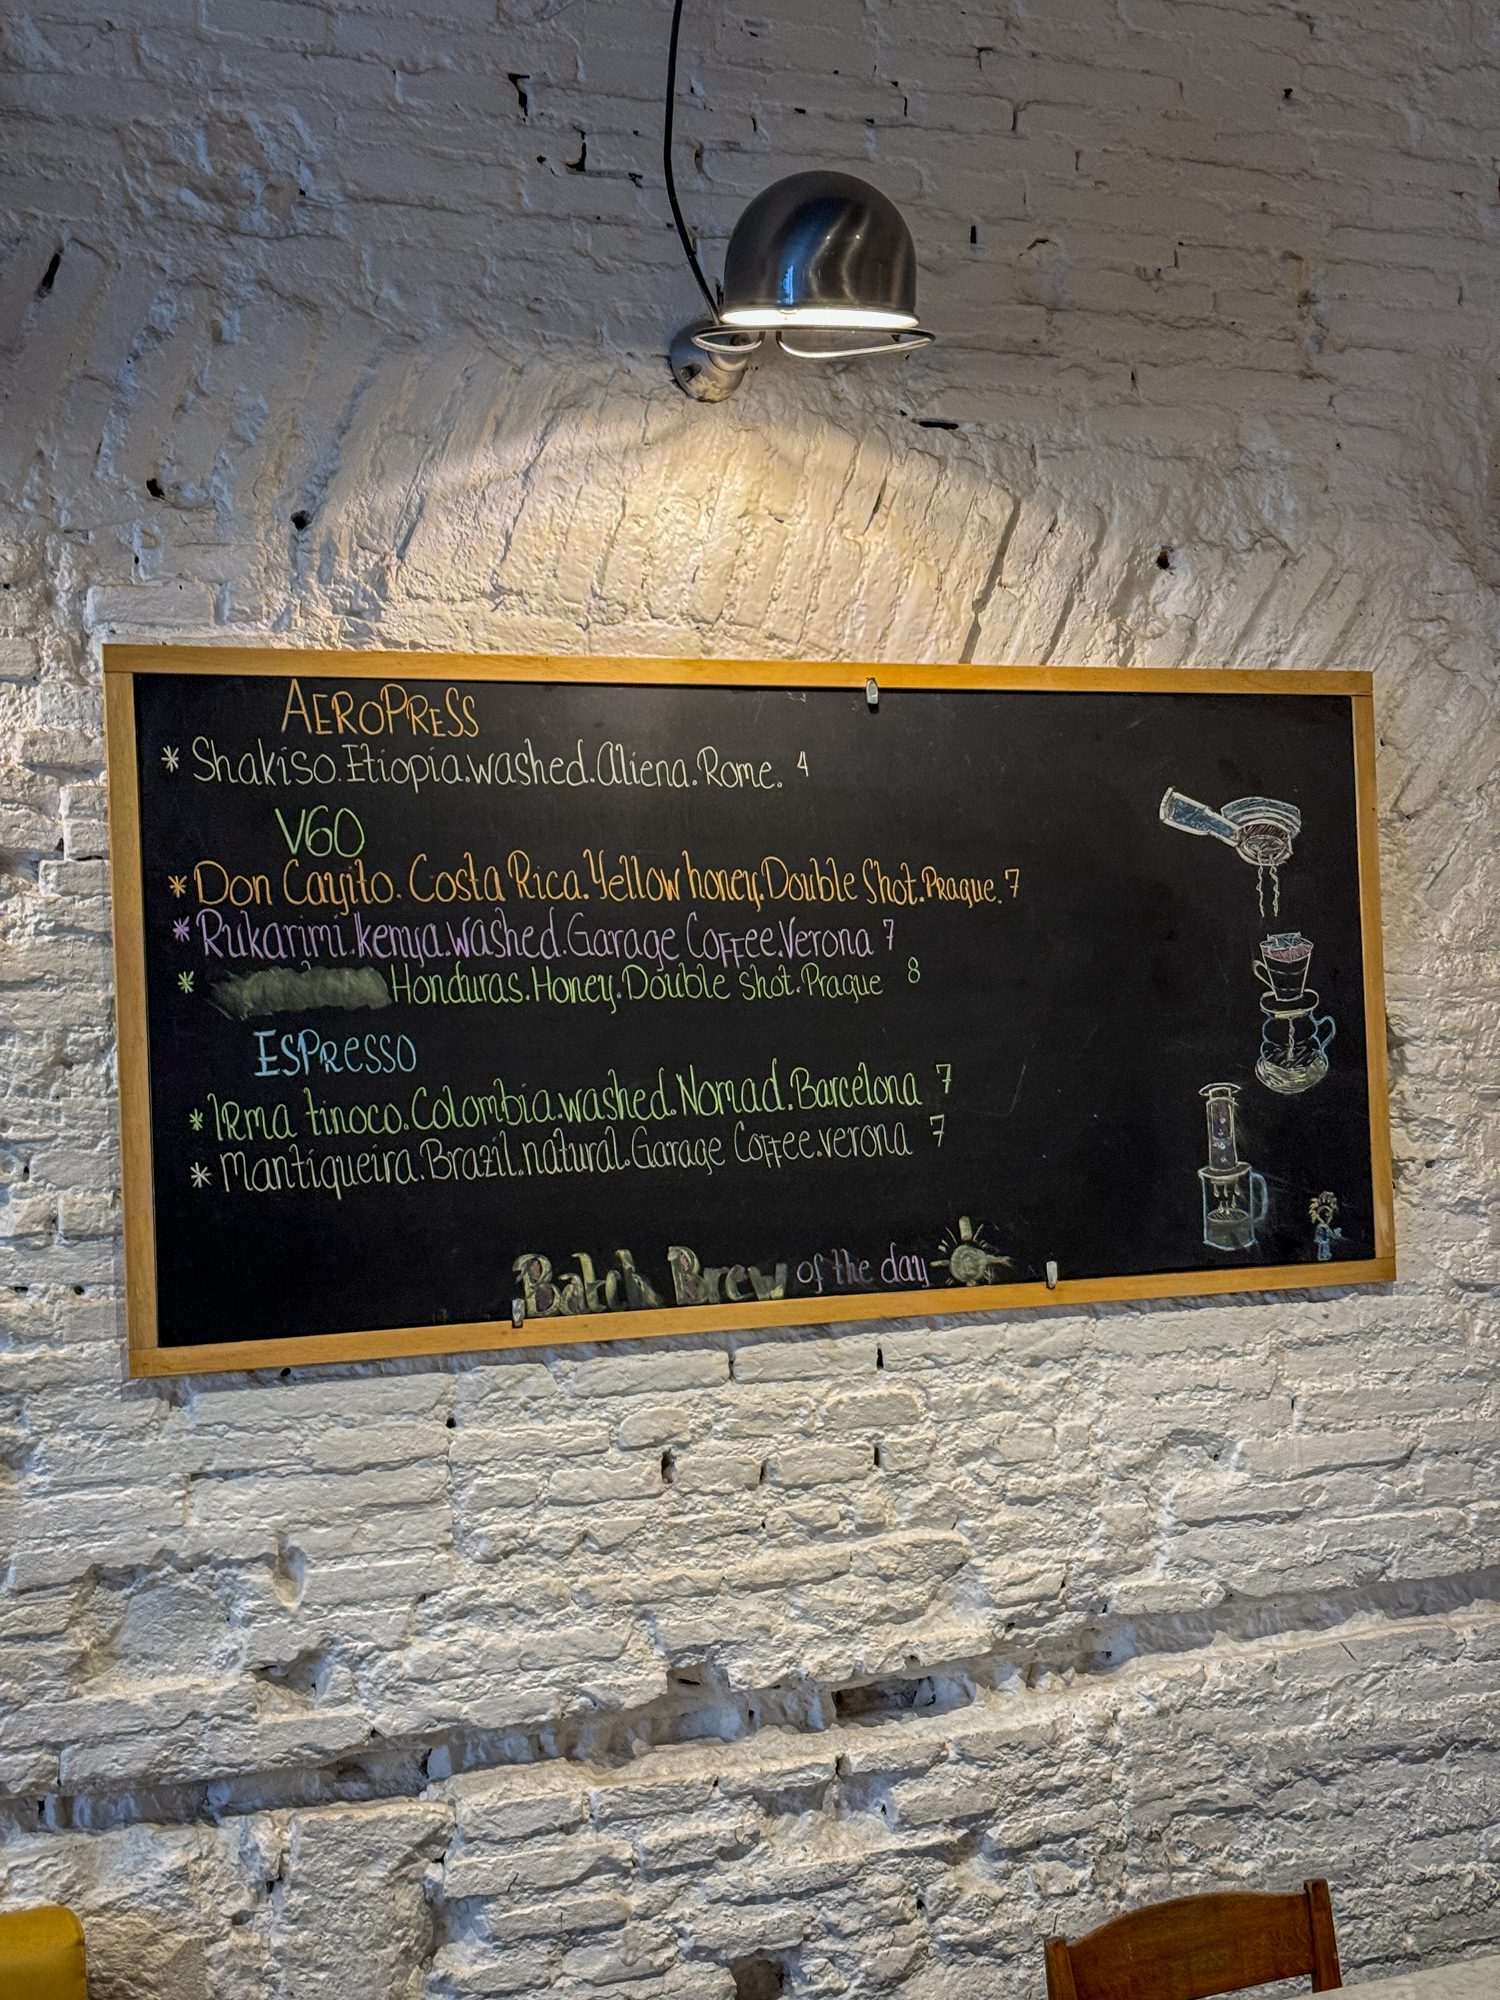 AEROPRESS
* Shakiso.Etiopia.washed.Aliena.Rome. 4
V60
* Don Cayito. Costa Rica. Yellow honey. Double Shot. Prague. 7
* Rukarimi.kenya.washed.Garage Coffee.Verona 7
* Honduras. Honey. Double Shot. Prague 8
ESPRESSO
* IRma tinoco. Colombia.washed. Nomad. Barcelona 7
* Mantiqueira. Brazil.natural. Garage Coffee.verona 7
Batch Brew of the day